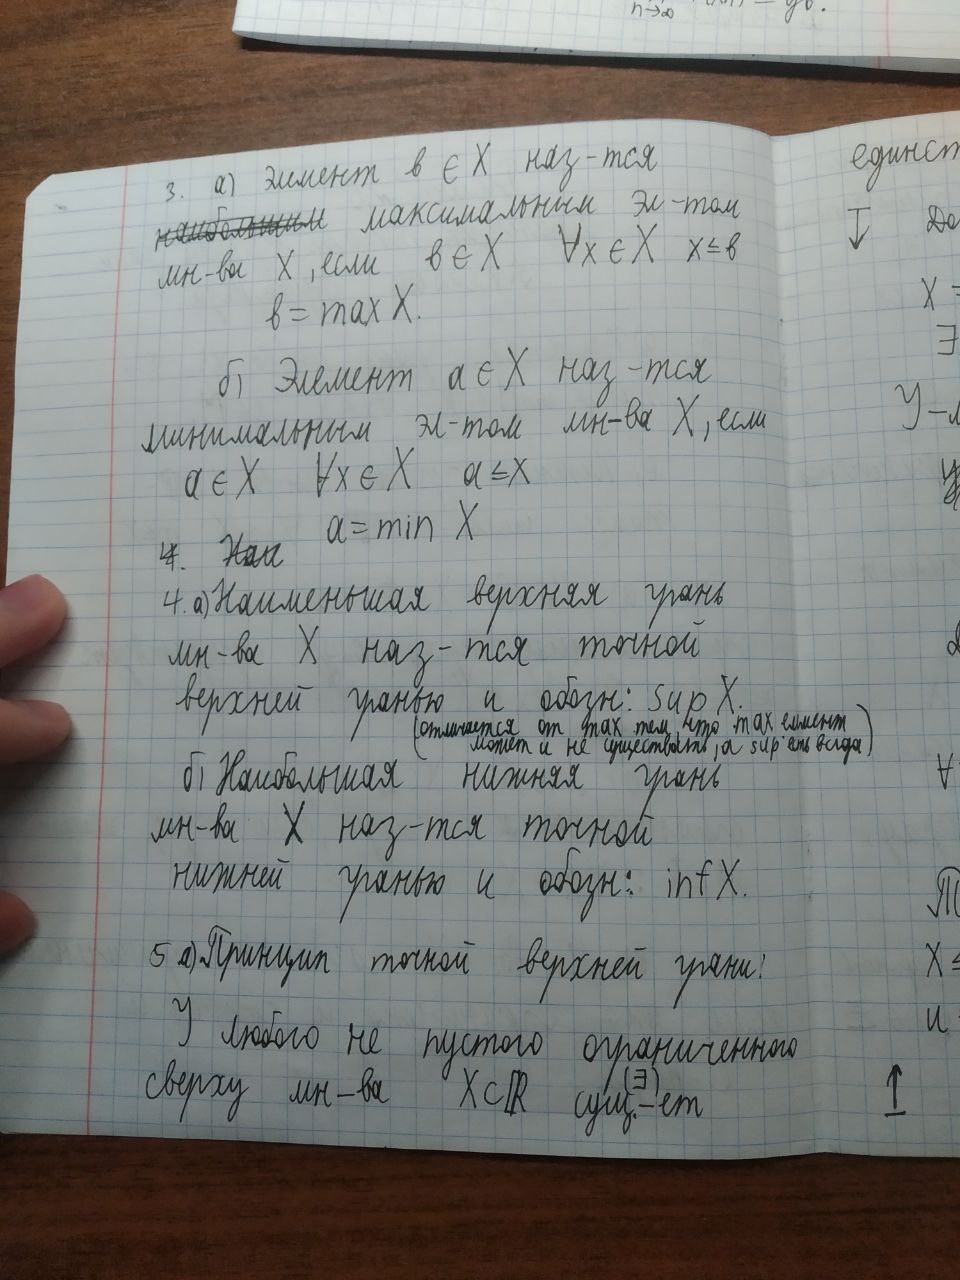 n→∞
3. а) Элемент в ∈ X наз-тся
наибольшим максимальным эл-том
мн-ва X, если в ∈ X ∀x ∈ X x ≤ в
в = max X.
б) Элемент a ∈ X наз-тся
минимальным эл-том мн-ва X, если
a ∈ X ∀x ∈ X a ≤ x
a = min X
4. Наи
4. а) Наименьшая верхняя грань
мн-ва X наз-тся точной
верхней гранью и обозн: sup X.
(отличается от max тем, что max елемент
может и не существовать, а sup есть всегда)
б) Наибольшая нижняя грань
мн-ва X наз-тся точной
нижней гранью и обозн: inf X.
5 а) Принцип точной верхней грани:
У любого не пустого ограниченного
(∃)
сверху мн-ва X⊂ℝ сущ.-ет
единст
X =
∃
У-
∀
X ≤
и